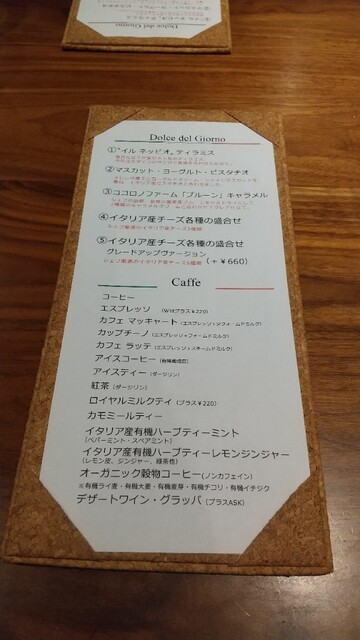 Dolce del Giorno
①"イル ネッビオ"ティラミス
②マスカット・ヨーグルト・ピスタチオ
③ココロノファーム「プルーン」キャラメル
④イタリア産チーズ各種の盛合せ
シェフ厳選のイタリア産チーズ3種類
⑤イタリア産チーズ各種の盛合せ
グレードアップヴァージョン
シェフ厳選のイタリア産チーズ5種類 (+¥660)
Caffe
コーヒー
エスプレッソ (Wはプラス¥220)
カフェ マッキャート (エスプレッソ+フォームドミルク)
カップチーノ (エスプレッソ+フォームドミルク)
カフェ ラッテ (エスプレッソ+スチームドミルク)
アイスコーヒー
アイスティー (ダージリン)
紅茶 (ダージリン)
ロイヤルミルクティ (プラス¥220)
カモミールティー
イタリア産有機ハーブティーミント
(ペパーミント・スペアミント)
イタリア産有機ハーブティーレモンジンジャー
(レモン皮、ジンジャー、緑茶他)
オーガニック穀物コーヒー(ノンカフェイン)
※有機ライ麦・有機大麦・有機麦芽・有機チコリ・有機イチジク
デザートワイン・グラッパ (プラスASK)